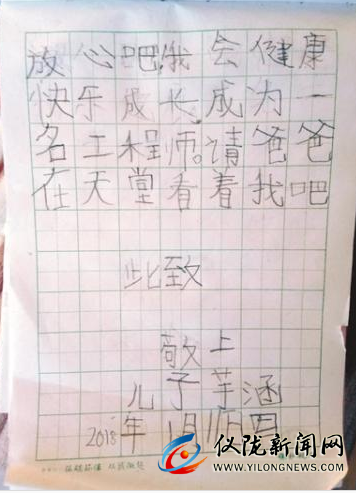 放心吧，我会健康
快乐成长，成为一
名工程师。请爸爸
在天堂看着我吧
此致
敬上
儿子芊涵
2018年1月11日
仪陇新闻网
WWW.YILONGNEWS.COM